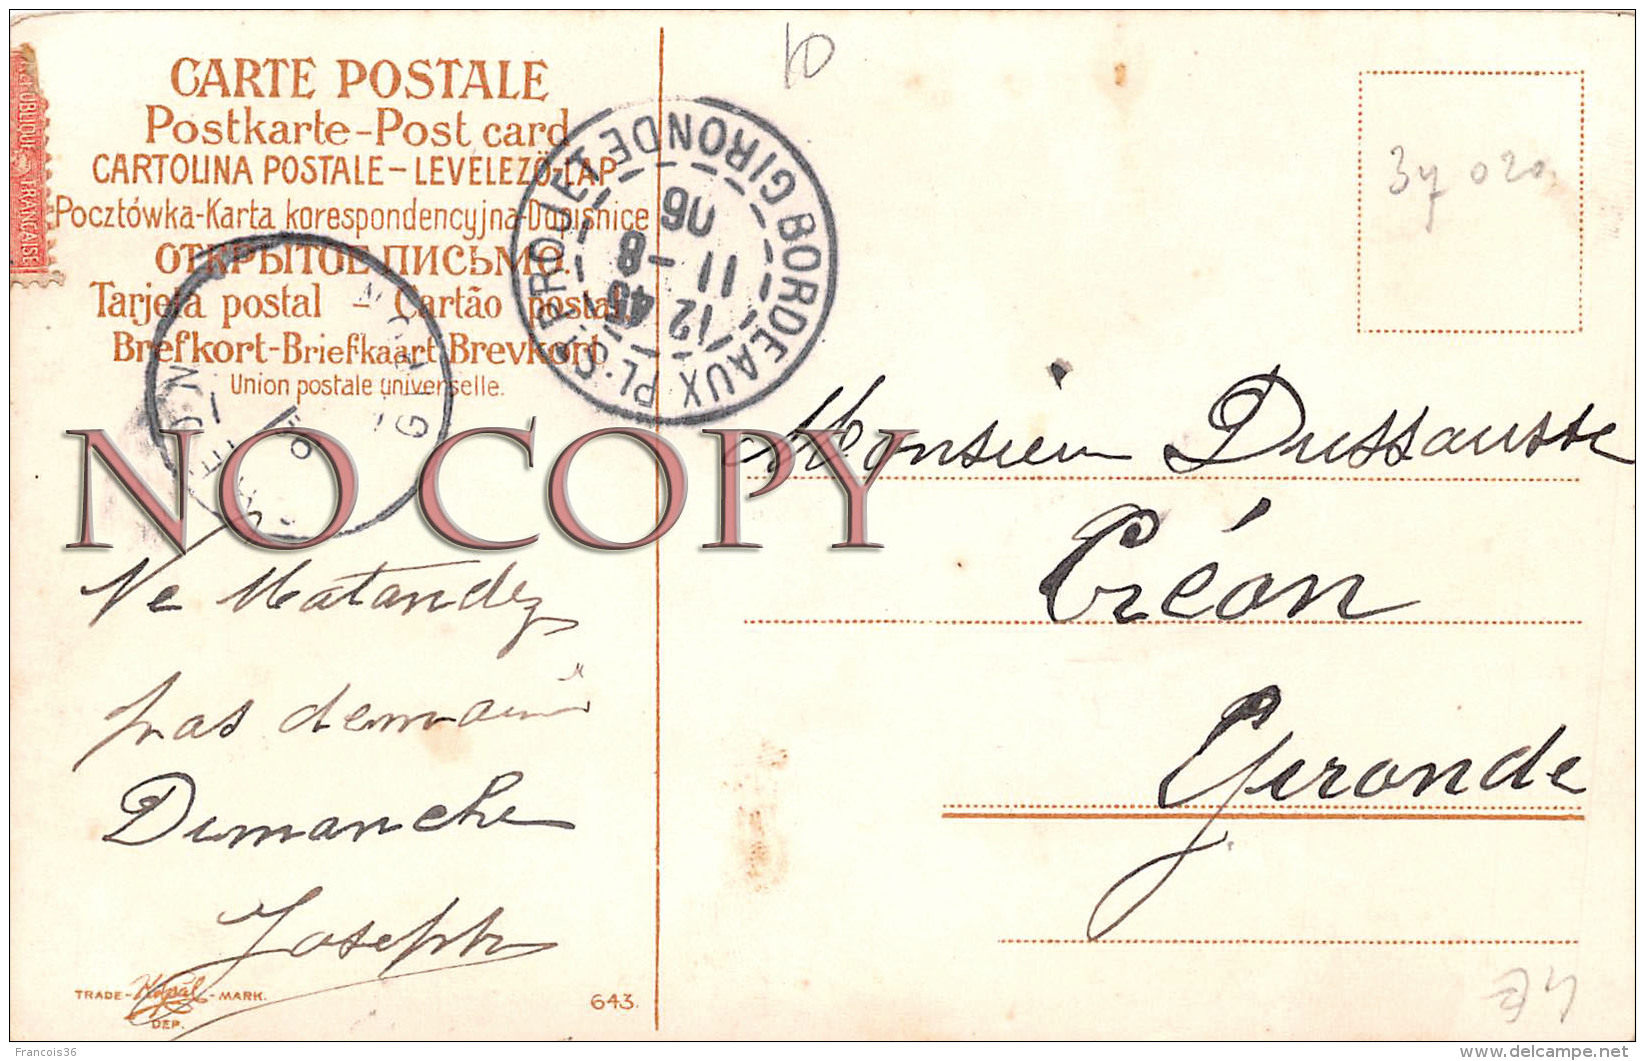 CARTE POSTALE
Postkarte-Post card
CARTOLINA POSTALE-LEVÉLEZÖ-LAP
Pocztówka-Karta korespondencyjna-Dopisnice
ОТКРЫТОЕ ПИСЬМО.
Tarjeta postal - Cartão postal
Brefkort-Briefkaart Brevkort
Union postale universelle.
RÉPUBLIQUE FRANÇAISE
BORDEAUX PL. ST PROJET
GIRONDE
12 45
11 -8
06
GIRONDE
10
37 020
NO COPY
Monsieur Dussausse
Créon
Gironde
Ne Matandez
pas demain
Dimanche
Joseph
TRADE- Kopál -MARK.
DEP.
643.
Francois36
delcampe.net